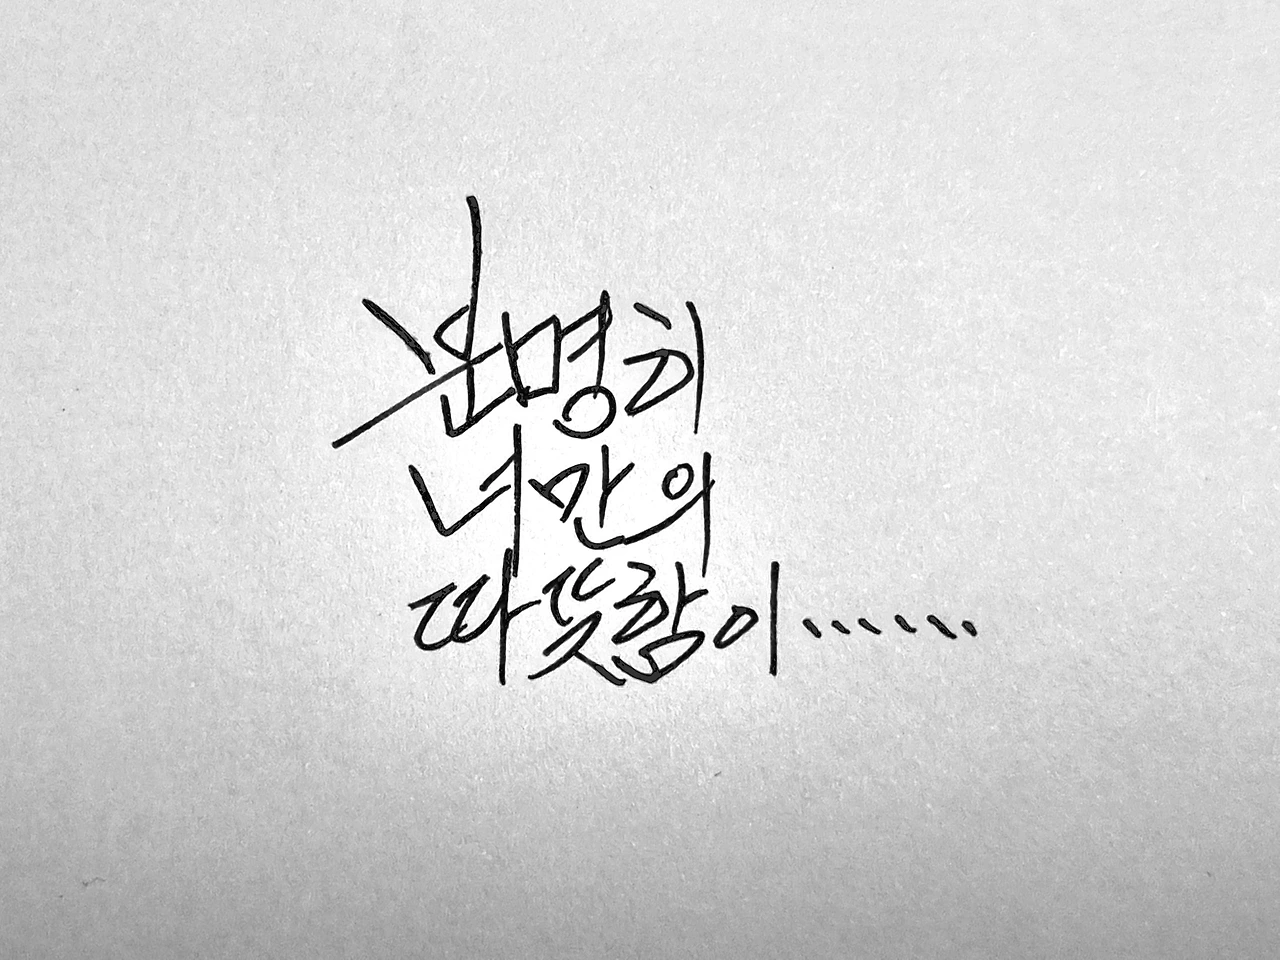 분명히
너만의
따뜻함이......